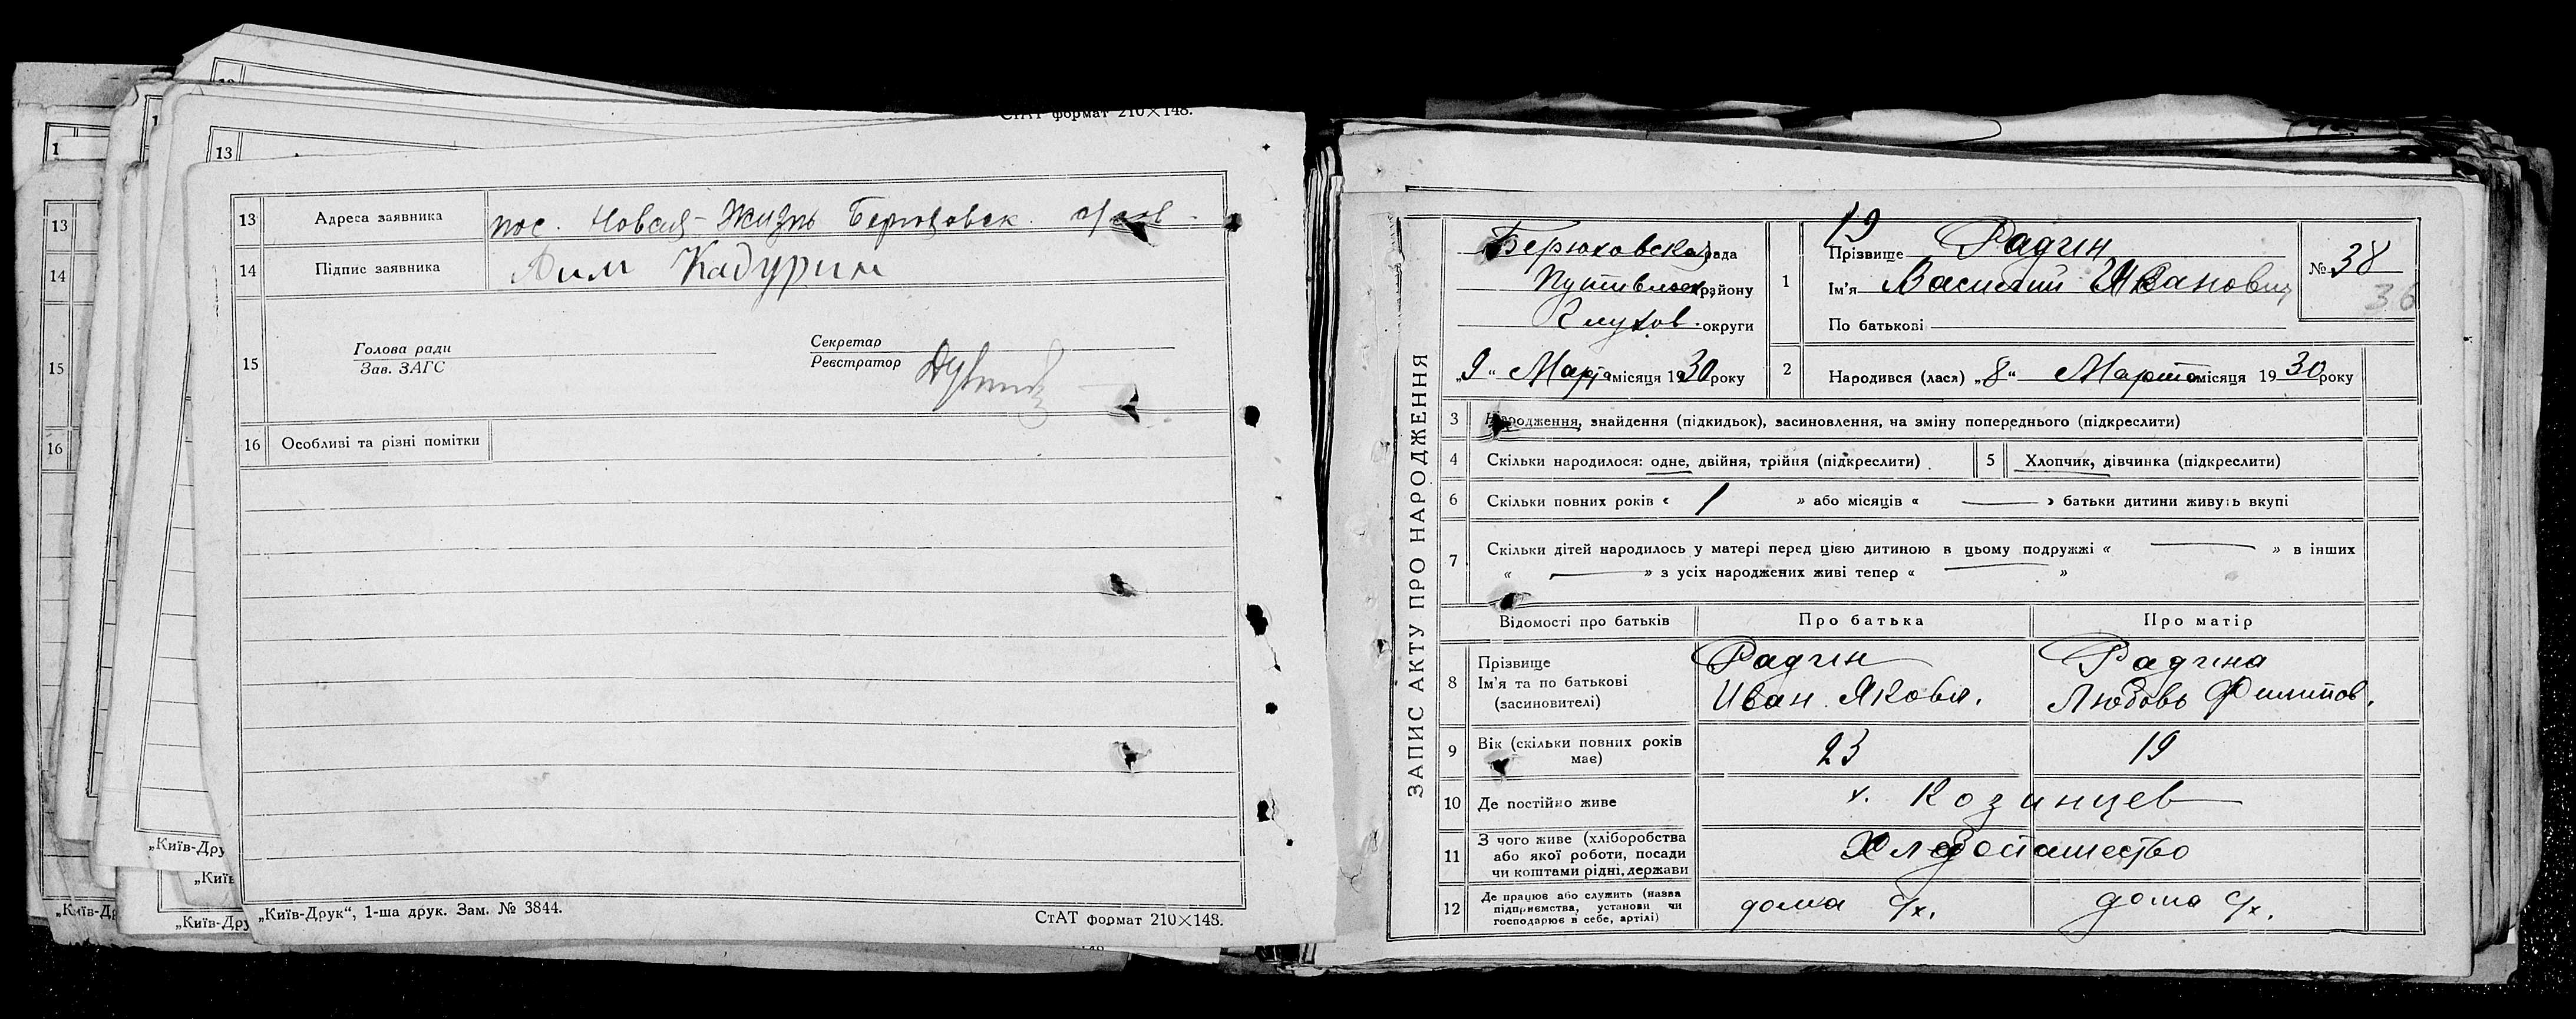 СтАТ формат 210×148.
13 Адреса заявника пос. Новая-Жизнь Берюховск. с/сов.
14 Підпис заявника Аким Кадурин
15 Голова ради
Зав. ЗАГС
Секретар
Реєстратор
16 Особливі та різні помітки
„Київ-Друк“, 1-ша друк. Зам. № 3844.
СтАТ формат 210×148.
1
13
14
15
16
13
„Київ-Дру
„Київ
„Київ-Др
„Київ-Дру
ЗАПИС АКТУ ПРО НАРОДЖЕННЯ
Берюховская рада
Путивльск. району
Глухов. округи
„9“ Марта місяця 1930 року
19
1 Прізвище Радчин
Ім'я Василий Иванович
По батькові
№ 38
36
2 Народився (лася) „8“ Марта місяця 1930 року
3 Народження, знайдення (підкидьок), засиновлення, на зміну попереднього (підкреслити)
4 Скільки народилося: одне, двійня, трійня (підкреслити)
5 Хлопчик, дівчинка (підкреслити)
6 Скільки повних років « 1 » або місяців « — » батьки дитини живуть вкупі
7 Скільки дітей народилось у матері перед цією дитиною в цьому подружжі « — » в інших
« — » з усіх народжених живі тепер « — »
Відомості про батьків Про батька Про матір
8 Прізвище Радчин Радчина
Ім'я та по батькові Иван Яковл. Любовь Филиппов.
(засиновителі)
9 Вік (скільки повних років має) 23 19
10 Де постійно живе х. Козинцев
11 З чого живе (хліборобства
або якої роботи, посади
чи коштами рідні, держави
Хлебопашество
12 Де працює або служить (назва
підприємства, установи чи
господарює в себе, артілі)
дома с/х. дома с/х.